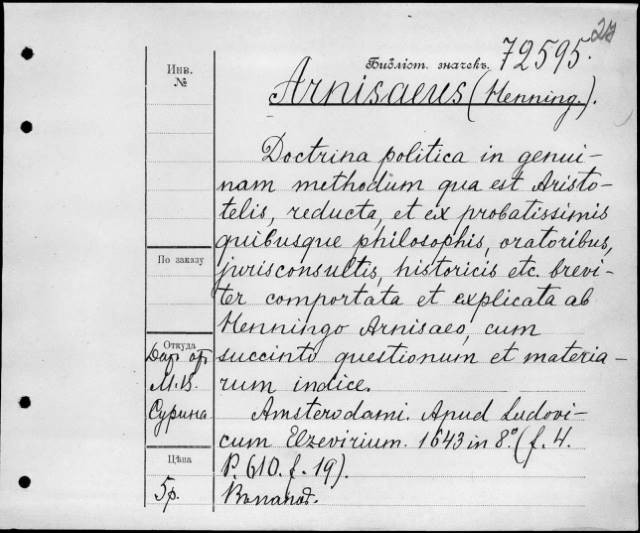 24
Библіот. значекъ. 72595.
Arnisaeus (Henning.).
Инв.
№
Doctrina politica in genui-
nam methodum qua est Aristo-
telis, reducta, et ex probatissimis
quibusque philosophis, oratoribus,
jurisconsultis, historicis etc. brevi-
ter comportata et explicata ab
Henningo Arnisaeo, cum
succinto questionum et materia-
rum indice.
Amsterodami. Apud Ludovi-
cum Elzevirium. 1643 in 8.° (f. 4.
P. 610. f. 19).
По заказу
Откуда
М. В.
Сурина
Цѣна
5 р.